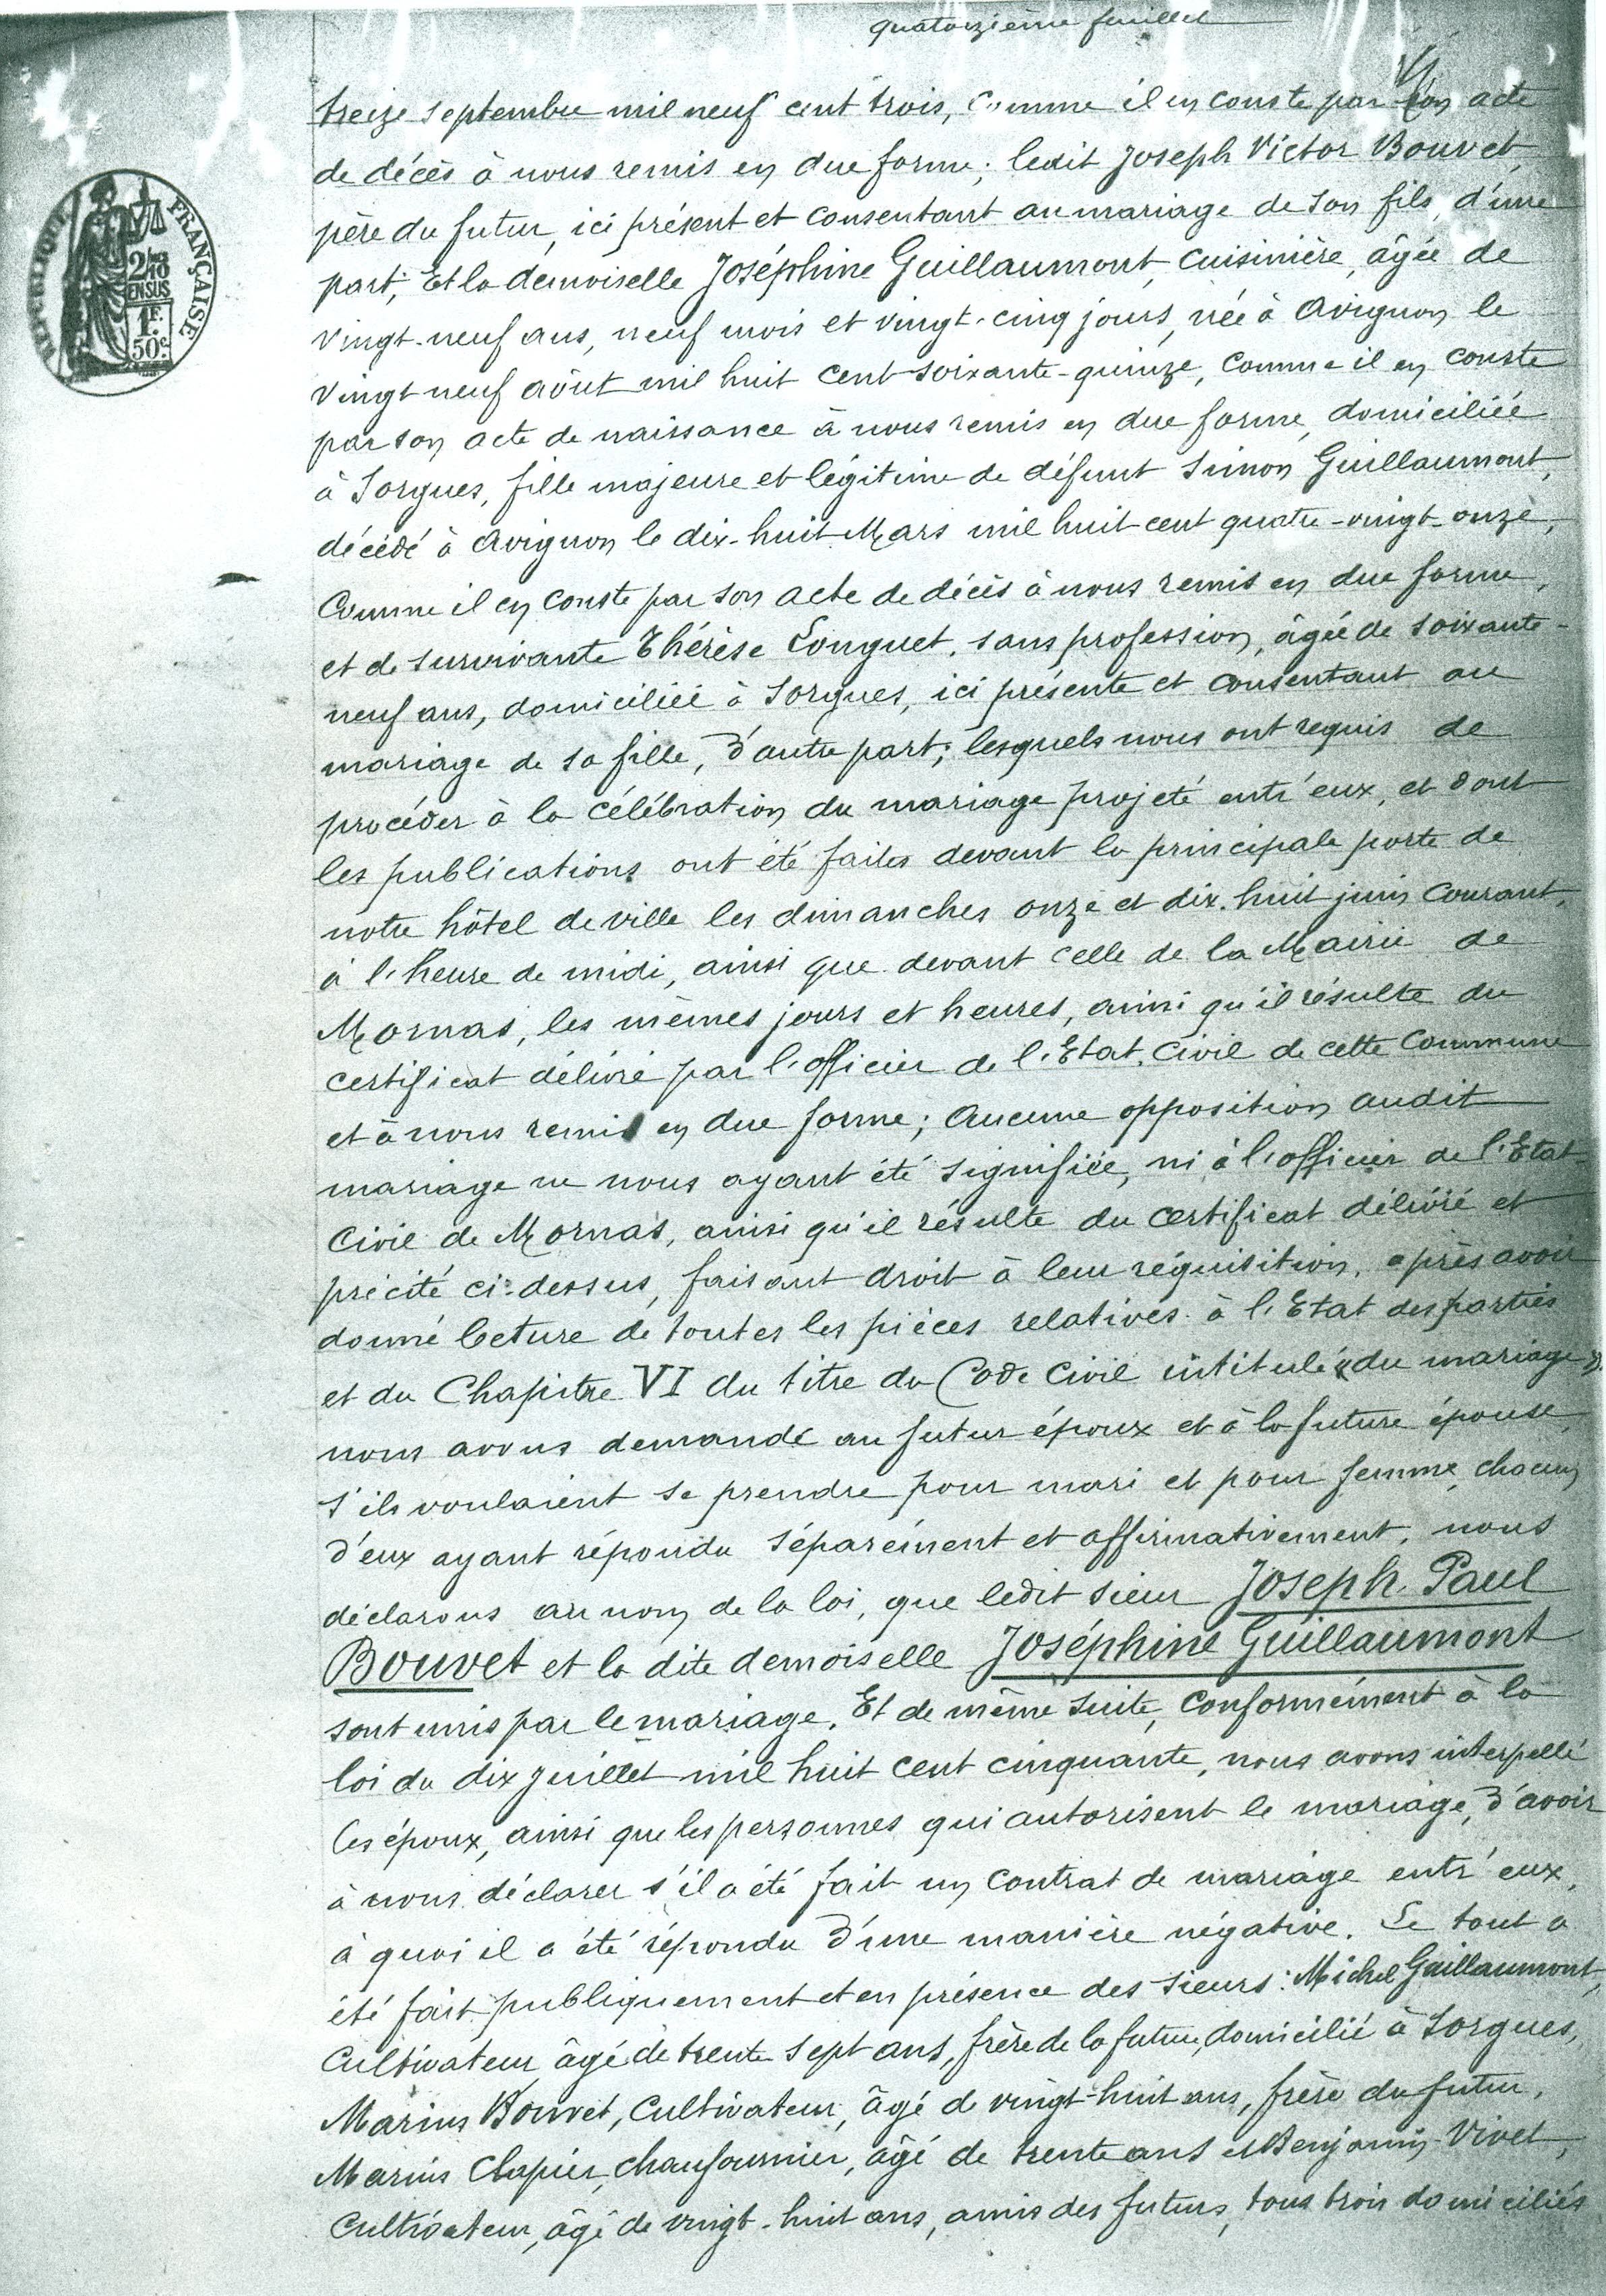 quatorzième feuillet
treize septembre mil neuf cent trois, comme il en conste par son acte
de décès à nous remis en due forme; ledit Joseph Victor Bouvet,
père du futur, ici présent et consentant au mariage de son fils, d'une
part; Et la demoiselle Joséphine Guillaumont, cuisinière, âgée de
vingt-neuf ans, neuf mois et vingt-cinq jours, née à Avignon le
vingt neuf août mil huit cent soixante-quinze, comme il en conste
par son acte de naissance à nous remis en due forme, domiciliée
à Sorgues, fille majeure et légitime de défunt Simon Guillaumont,
décédé à Avignon le dix-huit Mars mil huit cent quatre-vingt-onze,
comme il en conste par son acte de décès à nous remis en due forme,
et de survivante Thérèse Longuet, sans profession, âgée de soixante-
neuf ans, domiciliée à Sorgues, ici présente et consentant au
mariage de sa fille, d'autre part; lesquels nous ont requis de
procéder à la célébration du mariage projeté entr'eux, et dont
les publications ont été faites devant la principale porte de
notre hôtel de ville les dimanches onze et dix-huit juin courant,
à l'heure de midi, ainsi que devant celle de la Mairie de
Mornas, les mêmes jours et heures, ainsi qu'il résulte du
certificat délivré par l'officier de l'Etat Civil de cette commune
et à nous remis en due forme; aucune opposition audit
mariage ne nous ayant été signifiée, ni à l'officier de l'Etat
Civil de Mornas, ainsi qu'il résulte du certificat délivré et
précité ci-dessus, faisant droit à leur réquisition, après avoir
donné lecture de toutes les pièces relatives à l'Etat des parties
et du Chapitre VI du titre du Code Civil intitulé « du mariage »
nous avons demandé au futur époux et à la future épouse,
s'ils voulaient se prendre pour mari et pour femme, chacun
d'eux ayant répondu séparément et affirmativement, nous
déclarons au nom de la loi, que ledit sieur Joseph Paul
Bouvet et la dite demoiselle Joséphine Guillaumont
sont unis par le mariage. Et de même suite, conformément à la
loi du dix juillet mil huit cent cinquante, nous avons interpellé
les époux, ainsi que les personnes qui autorisent le mariage, d'avoir
à nous déclarer s'il a été fait un contrat de mariage entr'eux,
à quoi il a été répondu d'une manière négative. Le tout a
été fait publiquement et en présence des sieurs: Michel Guillaumont,
cultivateur, âgé de trente sept ans, frère de la future, domicilié à Sorgues,
Marius Bouvet, cultivateur, âgé de vingt-huit ans, frère du futur,
Marius Clapier, chaufournier, âgé de trente ans et Benjamin Vivet,
cultivateur, âgé de vingt-huit ans, amis des futurs, tous trois domiciliés
REPUBLIQUE FRANÇAISE
2/10
EN SUS
1F.
50c.